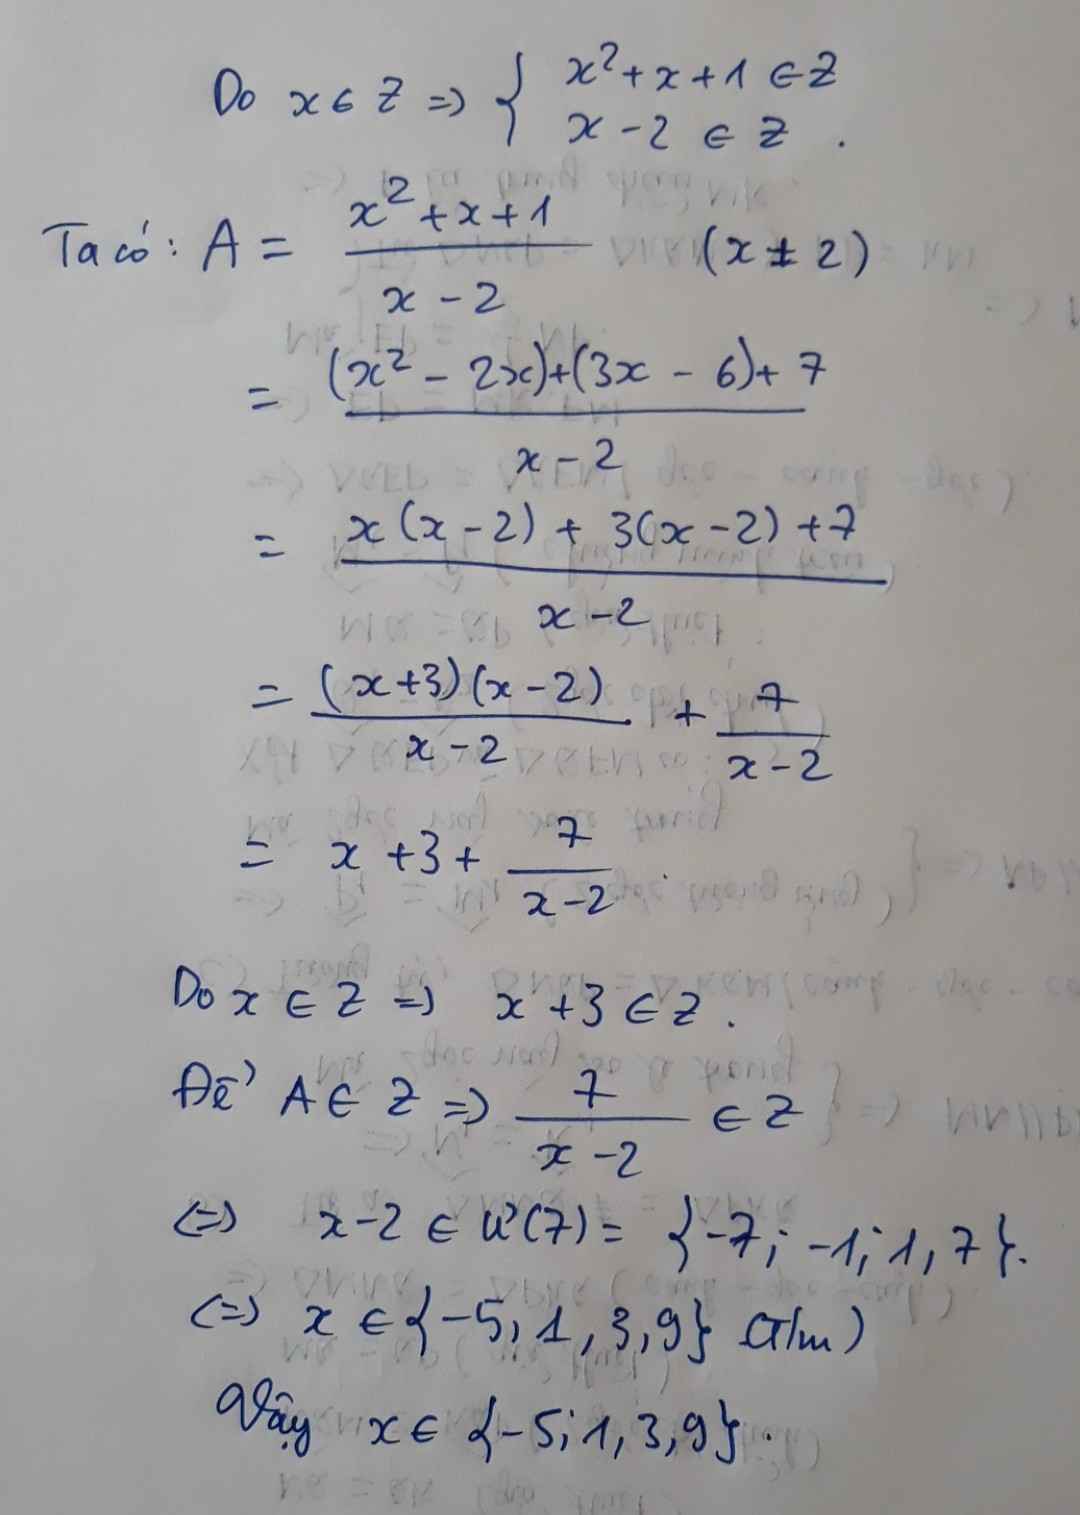 Do x ∈ Z => { x² + x + 1 ∈ Z
x - 2 ∈ Z .
Ta có: A = (x² + x + 1)/(x - 2) (x ≠ 2)
= ((x² - 2x) + (3x - 6) + 7)/(x - 2)
= (x(x - 2) + 3(x - 2) + 7)/(x - 2)
= ((x + 3)(x - 2))/(x - 2) + 7/(x - 2)
= x + 3 + 7/(x - 2) .
Do x ∈ Z => x + 3 ∈ Z .
Để A ∈ Z => 7/(x - 2) ∈ Z
<=> x - 2 ∈ Ư(7) = {-7; -1; 1, 7}.
<=> x ∈ {-5; 1, 3, 9} (T/m)
Vậy x ∈ {-5; 1, 3, 9}.